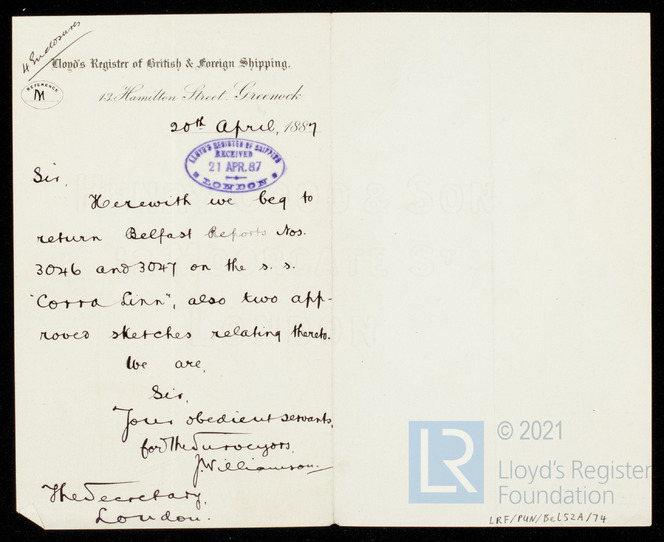 4 Enclosures
Lloyd's Register of British & Foreign Shipping,
REFERENCE
M
13, Hamilton Street, Greenock
20th April, 1887
LLOYD'S REGISTER OF SHIPPING
RECEIVED
21 APR. 87
LONDON
Sir,
Herewith we beg to
return Belfast Reports Nos.
3046 and 3047 on the s. s.
"Corra Linn", also two app-
roved sketches relating thereto.
We are,
Sir,
Your obedient servants,
for The Surveyors.
JWilliamson.
The Secretary,
London.
LONDON
LR
© 2021
Lloyd's Register
Foundation
LRF/PUN/BEL52A/74